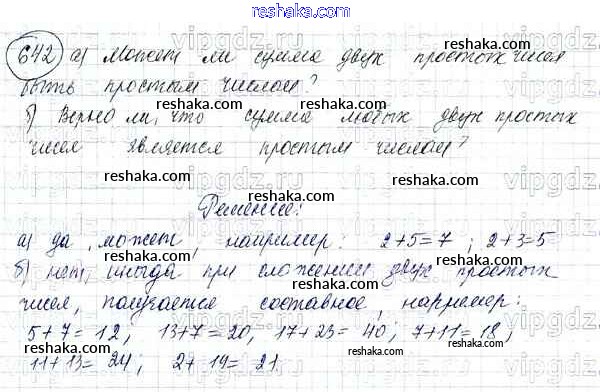 reshaka.com
642 а) Может ли сумма двух простых чисел
быть простым числом?
reshaka.com
б) Верно ли, что сумма любых двух простых
чисел является простым числом?
reshaka.com
Решение:
а) да, может, например: 2+5=7; 2+3=5
б) нет, иногда при сложении двух простых
чисел, получается составное, например:
5+7=12; 13+7=20, 17+23=40; 7+11=18,
11+13=24; 2+19=21.
reshaka.com